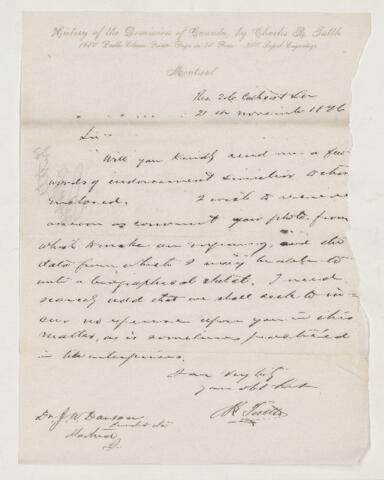 History of the Dominion of Canada, by Charles R. Tuttle
1400 Double Column Quarto Pages in 30 Parts. 300 Superb Engravings
Montreal
21 November 1876
Sir
Will you kindly send me a few
words of indorsement similar to those
enclosed. I wish to receive
as soon as convenient your photo. from
which to make an engraving, and the
data from which I may be able to
write a biographical sketch. I need
scarcely add that we shall seek to in-
cur no expense upon you in this
matter, as is sometimes practised
in like enterprises.
I am very
your obt Svt
C R Tuttle
Dr J. W. Dawson
Montreal